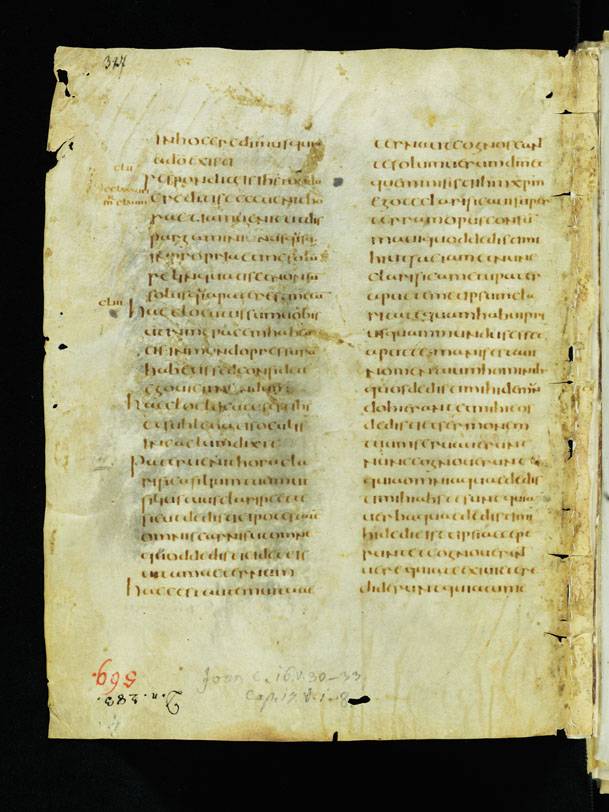 377
INhoccredimusquia
adoexisti
clii
Responditeisihsmodo
creditisecceuenitho
raetiamuenitutdis
pargamini
inpropriaetmesolu
relinquatisetnonsu
solusquiapater
cliii
haeclocutussumuobis
utinmepacemhabea
tisinmundopressura
habetissedconfidete
egouicimundum
haeclocutusestihs
etsubleuatisoculis
incaelumdixit
Pateruenithoracla
rificafiliumtuumut
filiustuusclarificette
sicutdedistieipotestate
omniscarnisutomne
quoddedistieideteis
uitamaeternam
haecestautemuitaae
ternautecognoscant
tesolumuerumdmet
quemmisistiihmxpm
egoteclarificauisuper
terramopusconsu
mauiquoddedistimi
hiutfaciametnunc
clarificametupater
aputtemetipsumcla
ritatequamhabuipri
usquammundusesset
aputtemanifestaui
nomentuumhominib
quosdedistimihidemun
erantetmihieos
dedistietsermonem
tuumseruauerunt
nunccognouerunt
quiaomniaquaededis
timihiabstesuntquia
uerbaquaededistimi
hidediesetipsiaccepe
runtetcognouerunt
uerequiateexiuietcre
dideruntquiatume
Joan c. 16. v. 30-33
Cap. 17. v. 1-8
569.
D. n. 283.